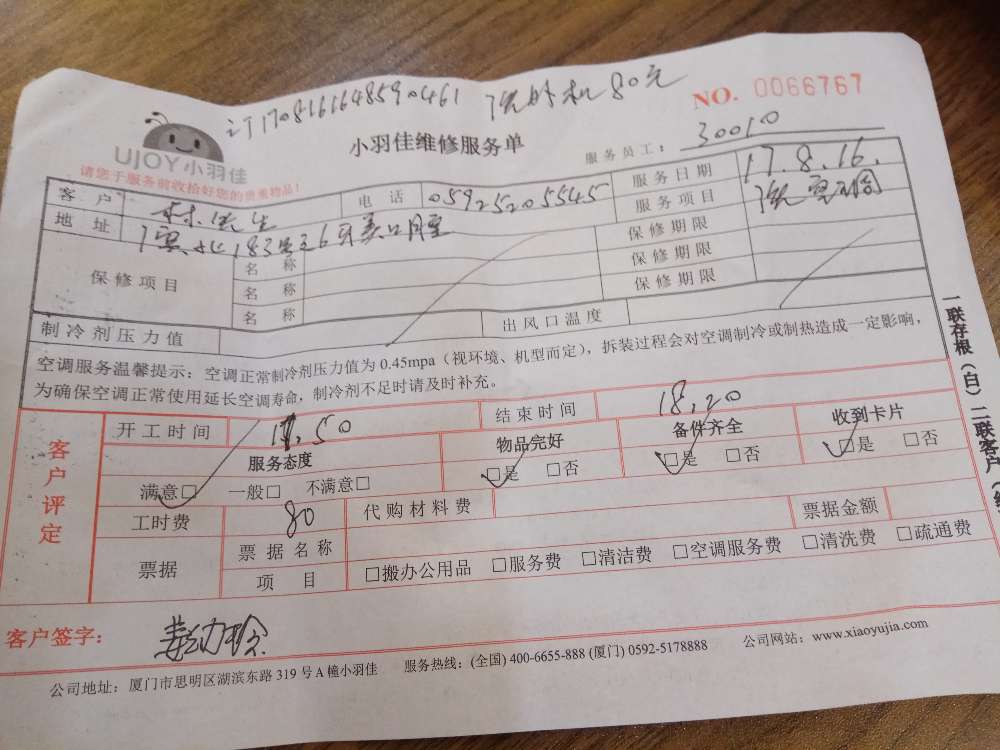 订1708161648590461 洗外机80元
NO. 0066767
UJOY小羽佳
小羽佳维修服务单
服务员工: 30010
请您于服务前收拾好您的贵重物品!
客户 林先生 电话 05925205545 服务日期 17.8.16.
地址 服务项目 洗空调
保修项目 名称 保修期限
名称 保修期限
名称 保修期限
制冷剂压力值 出风口温度
空调服务温馨提示: 空调正常制冷剂压力值为0.45mpa(视环境、机型而定),拆装过程会对空调制冷或制热造成一定影响,
为确保空调正常使用延长空调寿命,制冷剂不足时请及时补充。
客户评定
开工时间 17.50 结束时间 18.20
服务态度 物品完好 备件齐全 收到卡片
满意□ 一般□ 不满意□ □是 □否 □是 □否 □是 □否
工时费 80 代购材料费 票据金额
票据 票据名称
项目 □搬办公用品 □服务费 □清洁费 □空调服务费 □清洗费 □疏通费
客户签字:
公司地址: 厦门市思明区湖滨东路319号A幢小羽佳 服务热线: (全国) 400-6655-888 (厦门) 0592-5178888 公司网站: www.xiaoyujia.com
一联存根(白) 二联客户